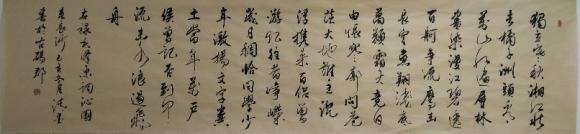 獨立寒秋湘江北
去橘子洲頭看
萬山紅遍層林
盡染漫江碧透
百舸爭流鷹擊
長空魚翔淺底
萬類霜天競自
由悵寥廓問蒼
茫大地誰主沉
浮攜來百侶曾
游憶往昔崢嶸
歲月稠恰同學少
年激揚文字糞
土當年萬戶
侯曾記否到中
流击水浪遏飛
舟
右錄毛澤東詞沁園
春長沙
書於古郡